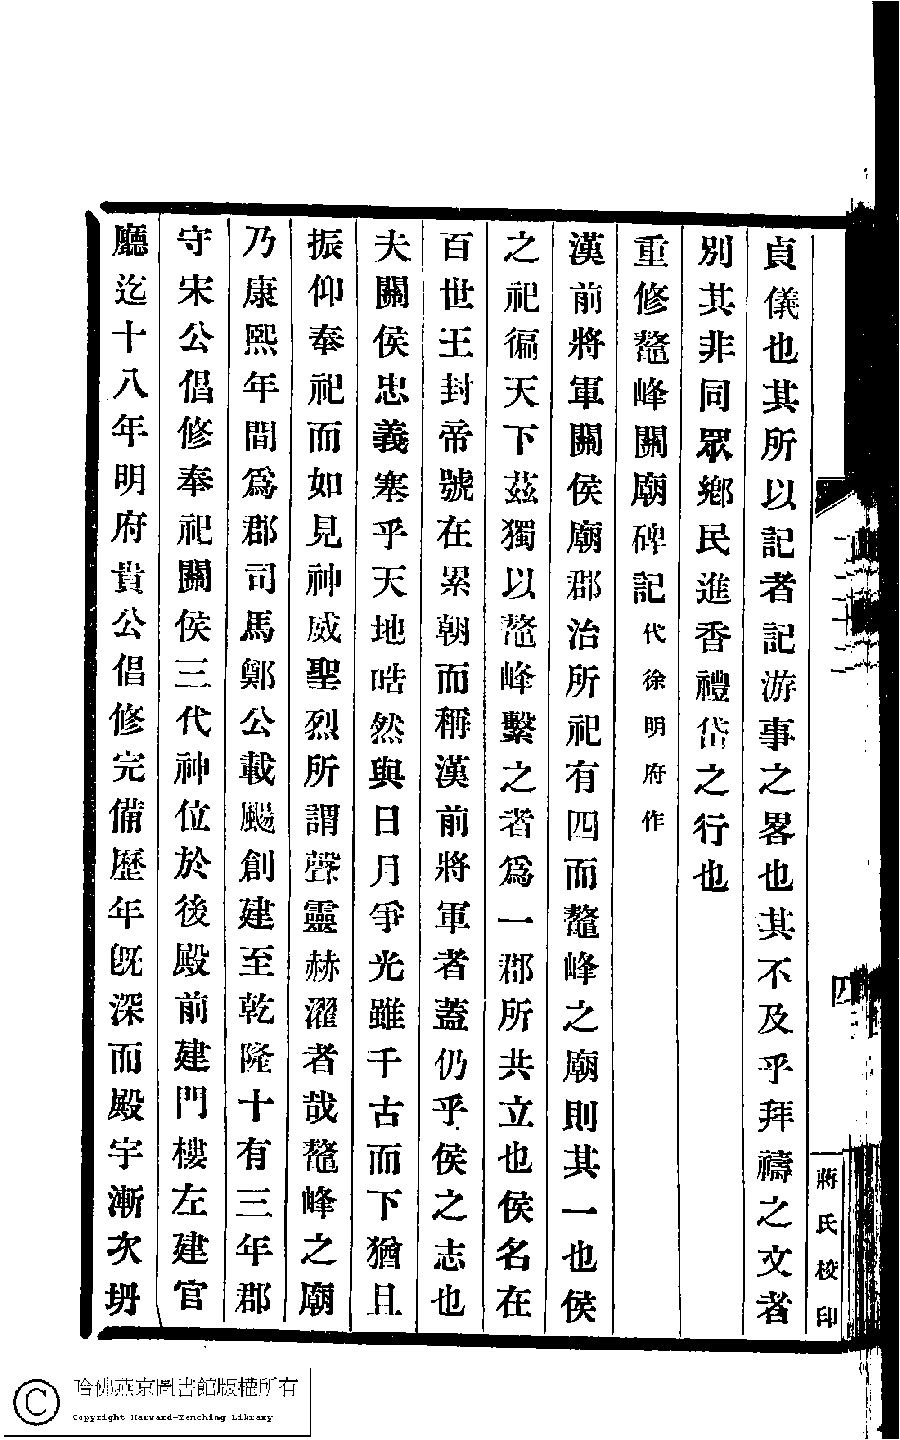 貞儀也其所以記者記游事之畧也其不及乎拜禱之文者
別其非同眾鄉民進香禮岱之行也
重修鼇峰關廟碑記代徐明府作
漢前將軍關侯廟郡治所祀有四而鼇峰之廟則其一也侯
之祀徧天下茲獨以鼇峰繫之者爲一郡所共立也侯名在
百世王封帝號在累朝而稱漢前將軍者蓋仍乎侯之志也
夫關侯忠義塞乎天地晧然與日月爭光雖千古而下猶且
振仰奉祀而如見神威聖烈所謂聲靈赫濯者哉鼇峰之廟
乃康熙年間爲郡司馬鄭公載颺創建至乾隆十有三年郡
守宋公倡修奉祀關侯三代神位於後殿前建門樓左建官
廳迄十八年明府貴公倡修完備歷年旣深而殿宇漸次坍
蔣氏校印
哈佛燕京圖書館版權所有
Copyright Harvard-Yenching Library